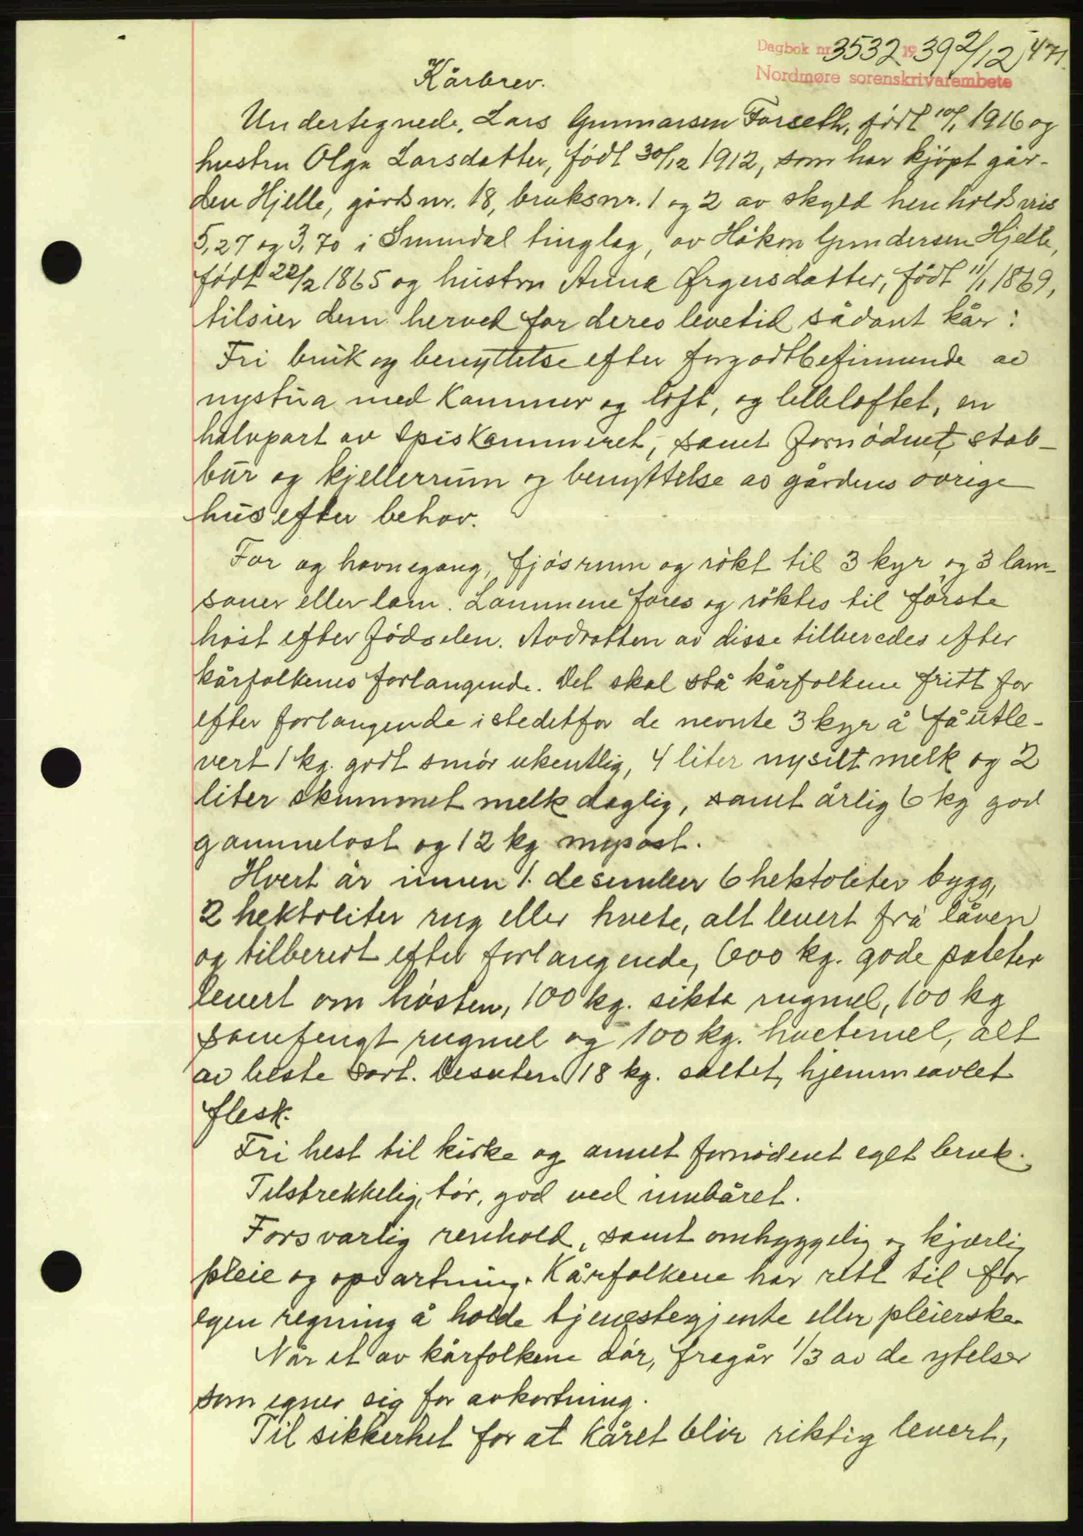 Dagbok nr. 3532 1939 2/12 471.
Nordmøre sorenskriverembete
Kårbrev.
Undertegnede, Lars Gunnarsen Forseth, født 10/1 1916 og
hustru Olga Larsdatter, født 30/12 1912, som har kjøpt går-
den Hjelle, gårdsnr. 18, bruksnr. 1 og 2 av skyld henholdsvis
5,27 og 3,70 i Sunndal tinglag, av Håkon Gundersen Hjelle,
født 22/2 1865 og hustru Anne Ørgersdatter, født 11/1 1869,
tilsier dem herved for deres levetid sådant kår:
Fri bruk og benyttelse efter forgodtbefinnende av
nystua med kammer og loft, og lilleloftet, en
halvpart av spiskammeret, samt fornødent, stab-
bur og kjellerrum og benyttelse av gårdens øvrige
hus efter behov.
For og havnegang, fjøsrum og røkt til 3 kyr og 3 lam-
sauer eller lam. Lammene fores og røktes til første
høst efter fødselen. Avdråtten av disse tilberedes efter
kårfolkenes forlangende. Det skal stå kårfolkene fritt for
efter forlangende istedetfor de nevnte 3 kyr å få utle-
vert 1 kg. godt smør ukentlig, 4 liter nysilt melk og 2
liter skummet melk daglig, samt årlig 6 kg god
gammelost og 12 kg mysost.
Hvert år innen 1. desember 6 hektoliter bygg,
2 hektoliter rug eller hvete, alt levert frå låven
og tilberedt efter forlangende, 600 kg. gode poteter
levert om høsten, 100 kg. sikta rugmel, 100 kg
samfengt rugmel og 100 kg. hvetemel, alt
av beste sort. Desuten 18 kg. saltet, hjemmeavlet
flesk.
Fri hest til kirke og annet fornødent eget bruk.
Tilstrekkelig, tør, god ved innbåret.
Forsvarlig renhold, samt omhyggelig og kjærlig
pleie og opvartning. Kårfolkene har rett til for
egen regning å holde tjenestegjente eller pleierske.
Når et av kårfolkene dør, fragår 1/3 av de ytelser
som egner sig for avkortning.
Til sikkerhet for at kåret blir riktig levert,